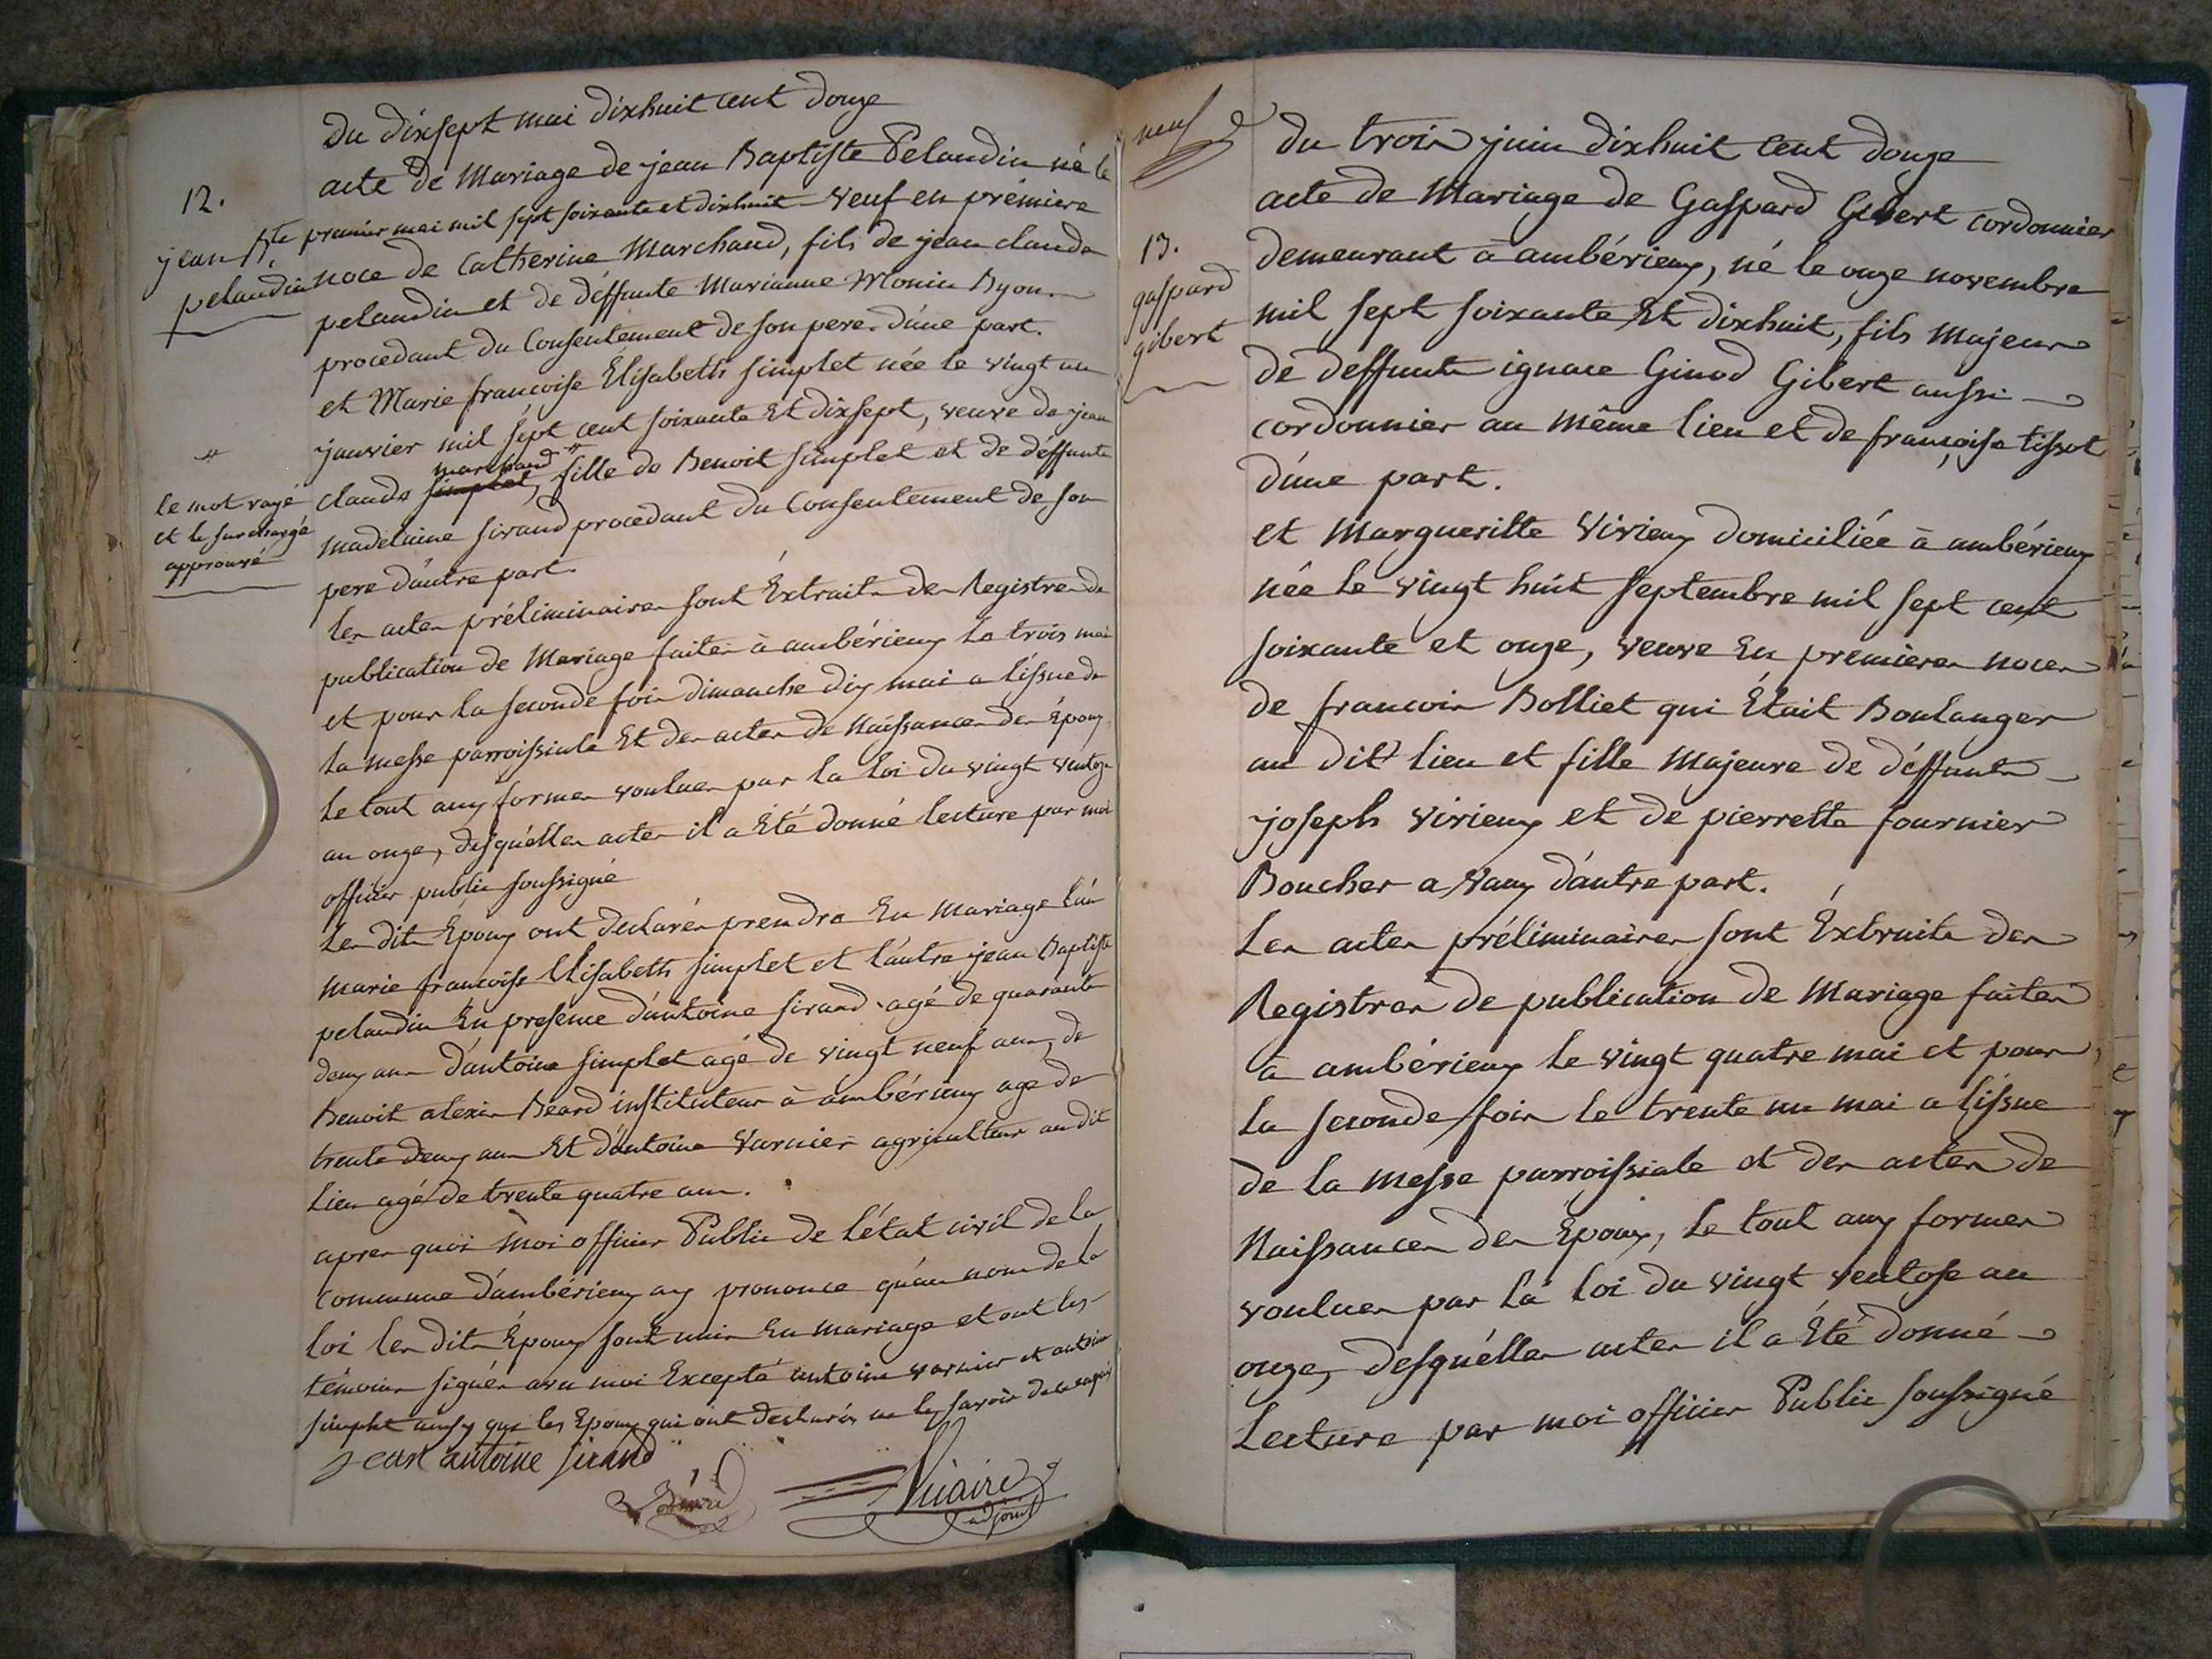 du dixsept mai dixhuit cent douze
12.
acte de Mariage de jean Baptiste Pelaudin né le
premier mai mil sept soixante et dixhuit veuf en prémiere
jean Bte
pelaudin
noce de Catherine Marchand, fils de jean claude
pelaudin et de déffunte Marianne Monin Dyon
procedant du Consentement de son pere d'une part.
et Marie francoise Élisabeth simplet née le vingt un
janvier mil sépt cent soixante Et dixsept, veuve de jean
marchand #
claude simplet, fille de Benoit simplet et de déffunte
#
le mot rayé
et le surchargé
approuvé
madelaine sirand procedant du Consentement de son
pere d'autre part.
les actes préliminaires sont Extraits des Registres de
publication de Mariage faites à ambérieux le trois mai
et pour la seconde fois dimanche dix mai a l'issue de
la messe parroissiale Et des actes de Naissances des Époux
le tout aux formes voulues par la loi du vingt ventose
an onze, desquélles actes il a Été donné lecture par moi
officier public soussigné
les dits Époux ont declarés prendre En Mariage l'un
Marie francoise Elisabeth simplet et l'autre jean Baptiste
pelaudin En presence d'antoine sirand agé de quarante
deux ans d'antoine simplet agé de vingt neuf ans, de
Benoit alexis Beard instituteur à ambérieux age de
trente deux ans Et d'antoine Varnier agriculteur au dit
lieu agé de trente quatre ans.
apres quoi moi officier Public de l'état civil de la
Commune d'ambérieux ay prononcé qu'au nom de la
loi les dits Époux sont unis En mariage et ont les
témoins signés avec moi Excepté antoine varnier et antoine
simplet ainsy que les Epoux qui ont declarés ne le savoir de ce requis
Jean antoine sirand
Béard
adjoint
neuf
du trois juin dixhuit cent douze
acte de Mariage de Gaspard Gibert cordonnier
13.
gaspard
gibert
demeurant à ambérieux, né le onze novembre
mil sept soixante Et dixhuit, fils majeur
de deffunts ignace Ginod Gibert aussi
cordonnier au même lieu et de françoise tissot
d'une part.
et Marguerite Vivieux domiciliée à ambérieux
née le vingt huit septembre mil sept cent
soixante et onze, veuve En premieres noces
de francois Bolliet qui Était Boulanger
au dit lieu et fille Majeure de déffunts
joseph vivieux et de pierrette fournier
Boucher a Vaux d'autre part.
Les actes préliminaires sont Éxtraits des
Registres de publication de Mariage faites
à ambérieux le vingt quatre mai et pour
la seconde fois le trente un mai a l'issue
de la Messe parroissiale et des actes de
Naissances des Epoux, le tout aux formes
voulues par la loi du vingt ventose an
onze, desquélles actes il a Été donné
Lecture par moi officier Public soussigné